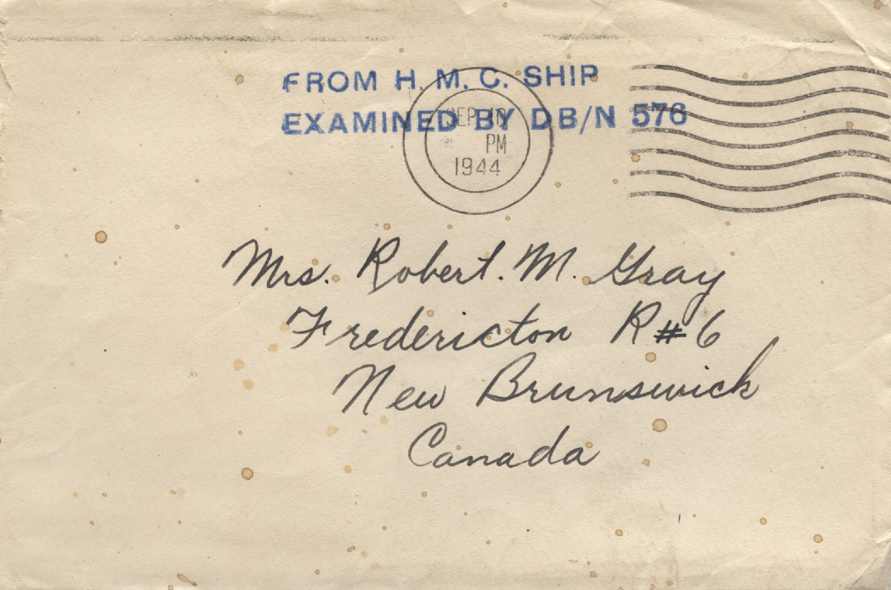 FROM H. M. C. SHIP
EXAMINED BY DB/N 576
SEP 10
PM
1944
Mrs. Robert. M. Gray
Fredericton R#6
New Brunswick
Canada